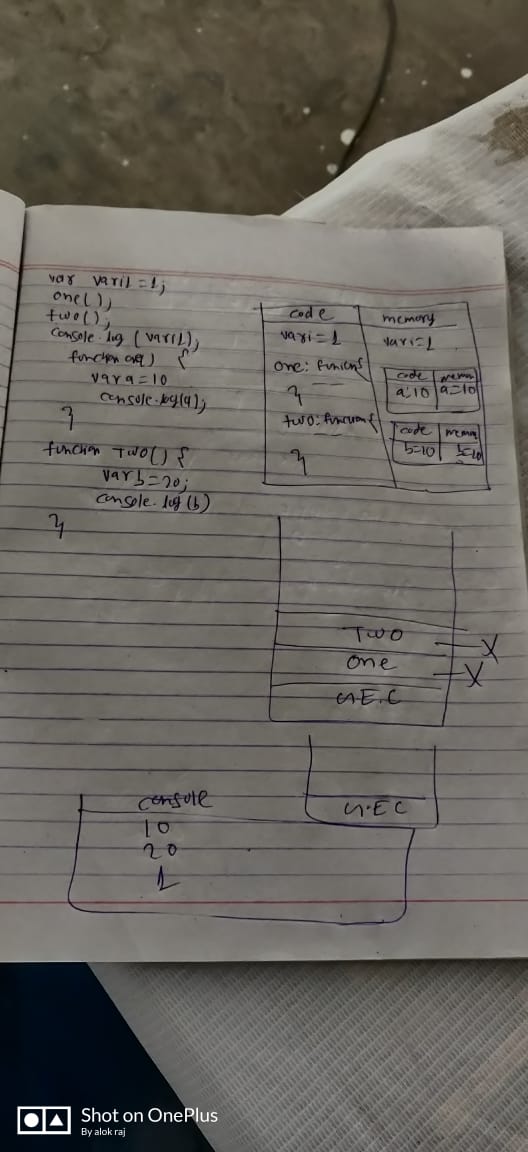 var vari1 = 1;
one();
two();
console.log (vari1);
function one() {
var a = 10
console.log(a);
}
function Two() {
var b = 20;
console.log (b)
}
code memory
vari = 1 vari = 1
one: {
code
a:10 a=10
}
two: {
code
b=10
}
Two X
one X
G.E.C
G.E.C
console
10
20
1
Shot on OnePlus
By alok raj